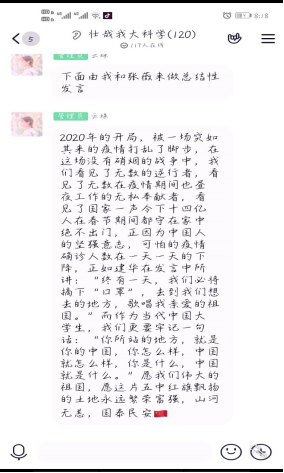 5
壮哉我大科学(120)
117人在线
管理员 云妹
下面由我和张薇来做总结性
发言
管理员 云妹
2020年的开局，被一场突如
其来的疫情打乱了脚步，在
这场没有硝烟的战争中，我
们看见了无数的逆行者，看
见了无数在疫情期间也昼
夜工作的无私奉献者，看
见了国家一声令下十四亿
人在春节期间都守在家中
绝不出门，正因为中国人
的坚强意志，可怕的疫情
确诊人数在一天一天的下
降，正如建华在发言中所
讲：“终有一天，我们必将
摘下“口罩”，去到我们想
去的地方，歌唱我亲爱的祖
国。”而作为当代中国大
学生，我们更要牢记一句
话：“你所站的地方，就是
你的中国，你怎么样，中国
就怎么样，你是什么，中国
就是什么。”愿我们伟大的
祖国，愿这片五中红旗飘扬
的土地永远繁荣富强，山河
无恙，国泰民安🇨🇳